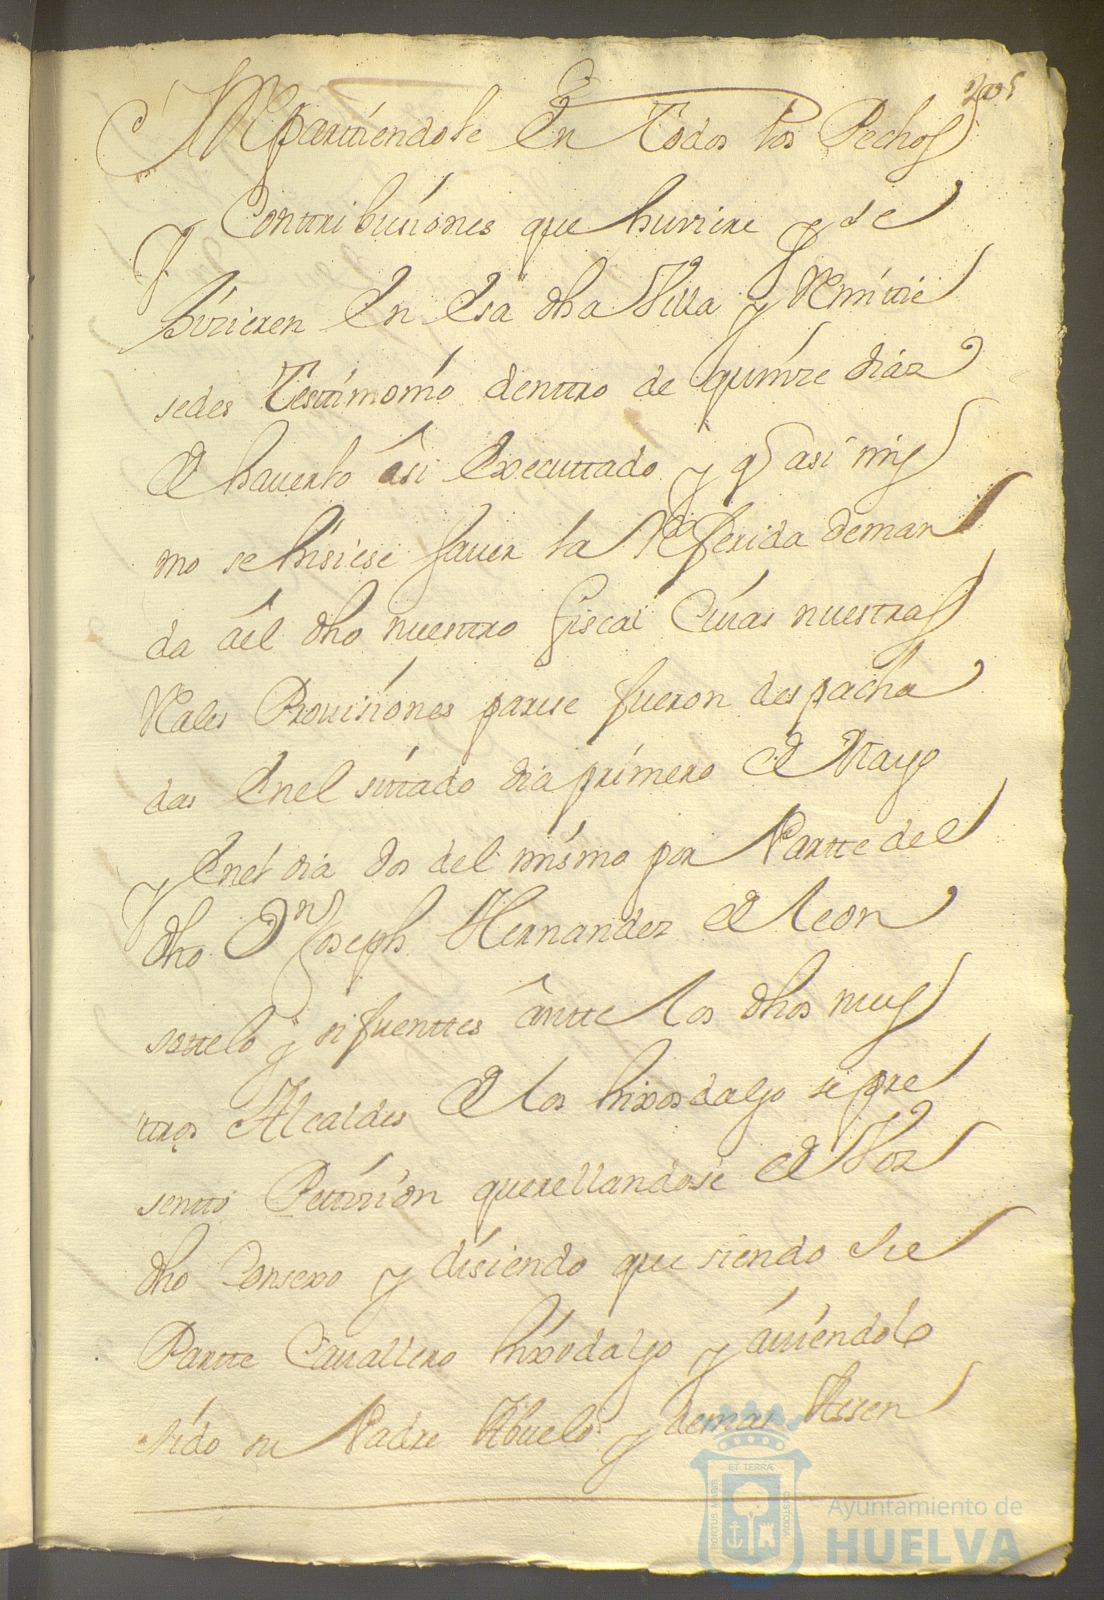 Repartiendole En Todos los Pechos
y Conttribusiones que huviere y se
hizieren En Esa dha Villa y Remittie
sedes Testtimonio denttro de quinze dias
de haverlo asi Executtado y q asi mis
mo se hisiese saver la Referida deman
da ael dho nuesttro Fiscal Cuias nuestras
Rales Provisiones parese fueron despacha
das Enel sittado dia primero de Mayo
y Enel dia dos del mismo por Partte del
dho Dn Joseph Hernandez de Leon
sottelo y sifuenttes antte los dhos nues
ttros Alcaldes de los hixosdalgo se pre
sentto Pettision querellandose de Vos
dho Consexo y disiendo que siendo su
Partte Cavallero hixodalgo y aviendolo
sido su Padre Abuelo y demas Assen
ET TERRÆ
Ayuntamiento de
HUELVA